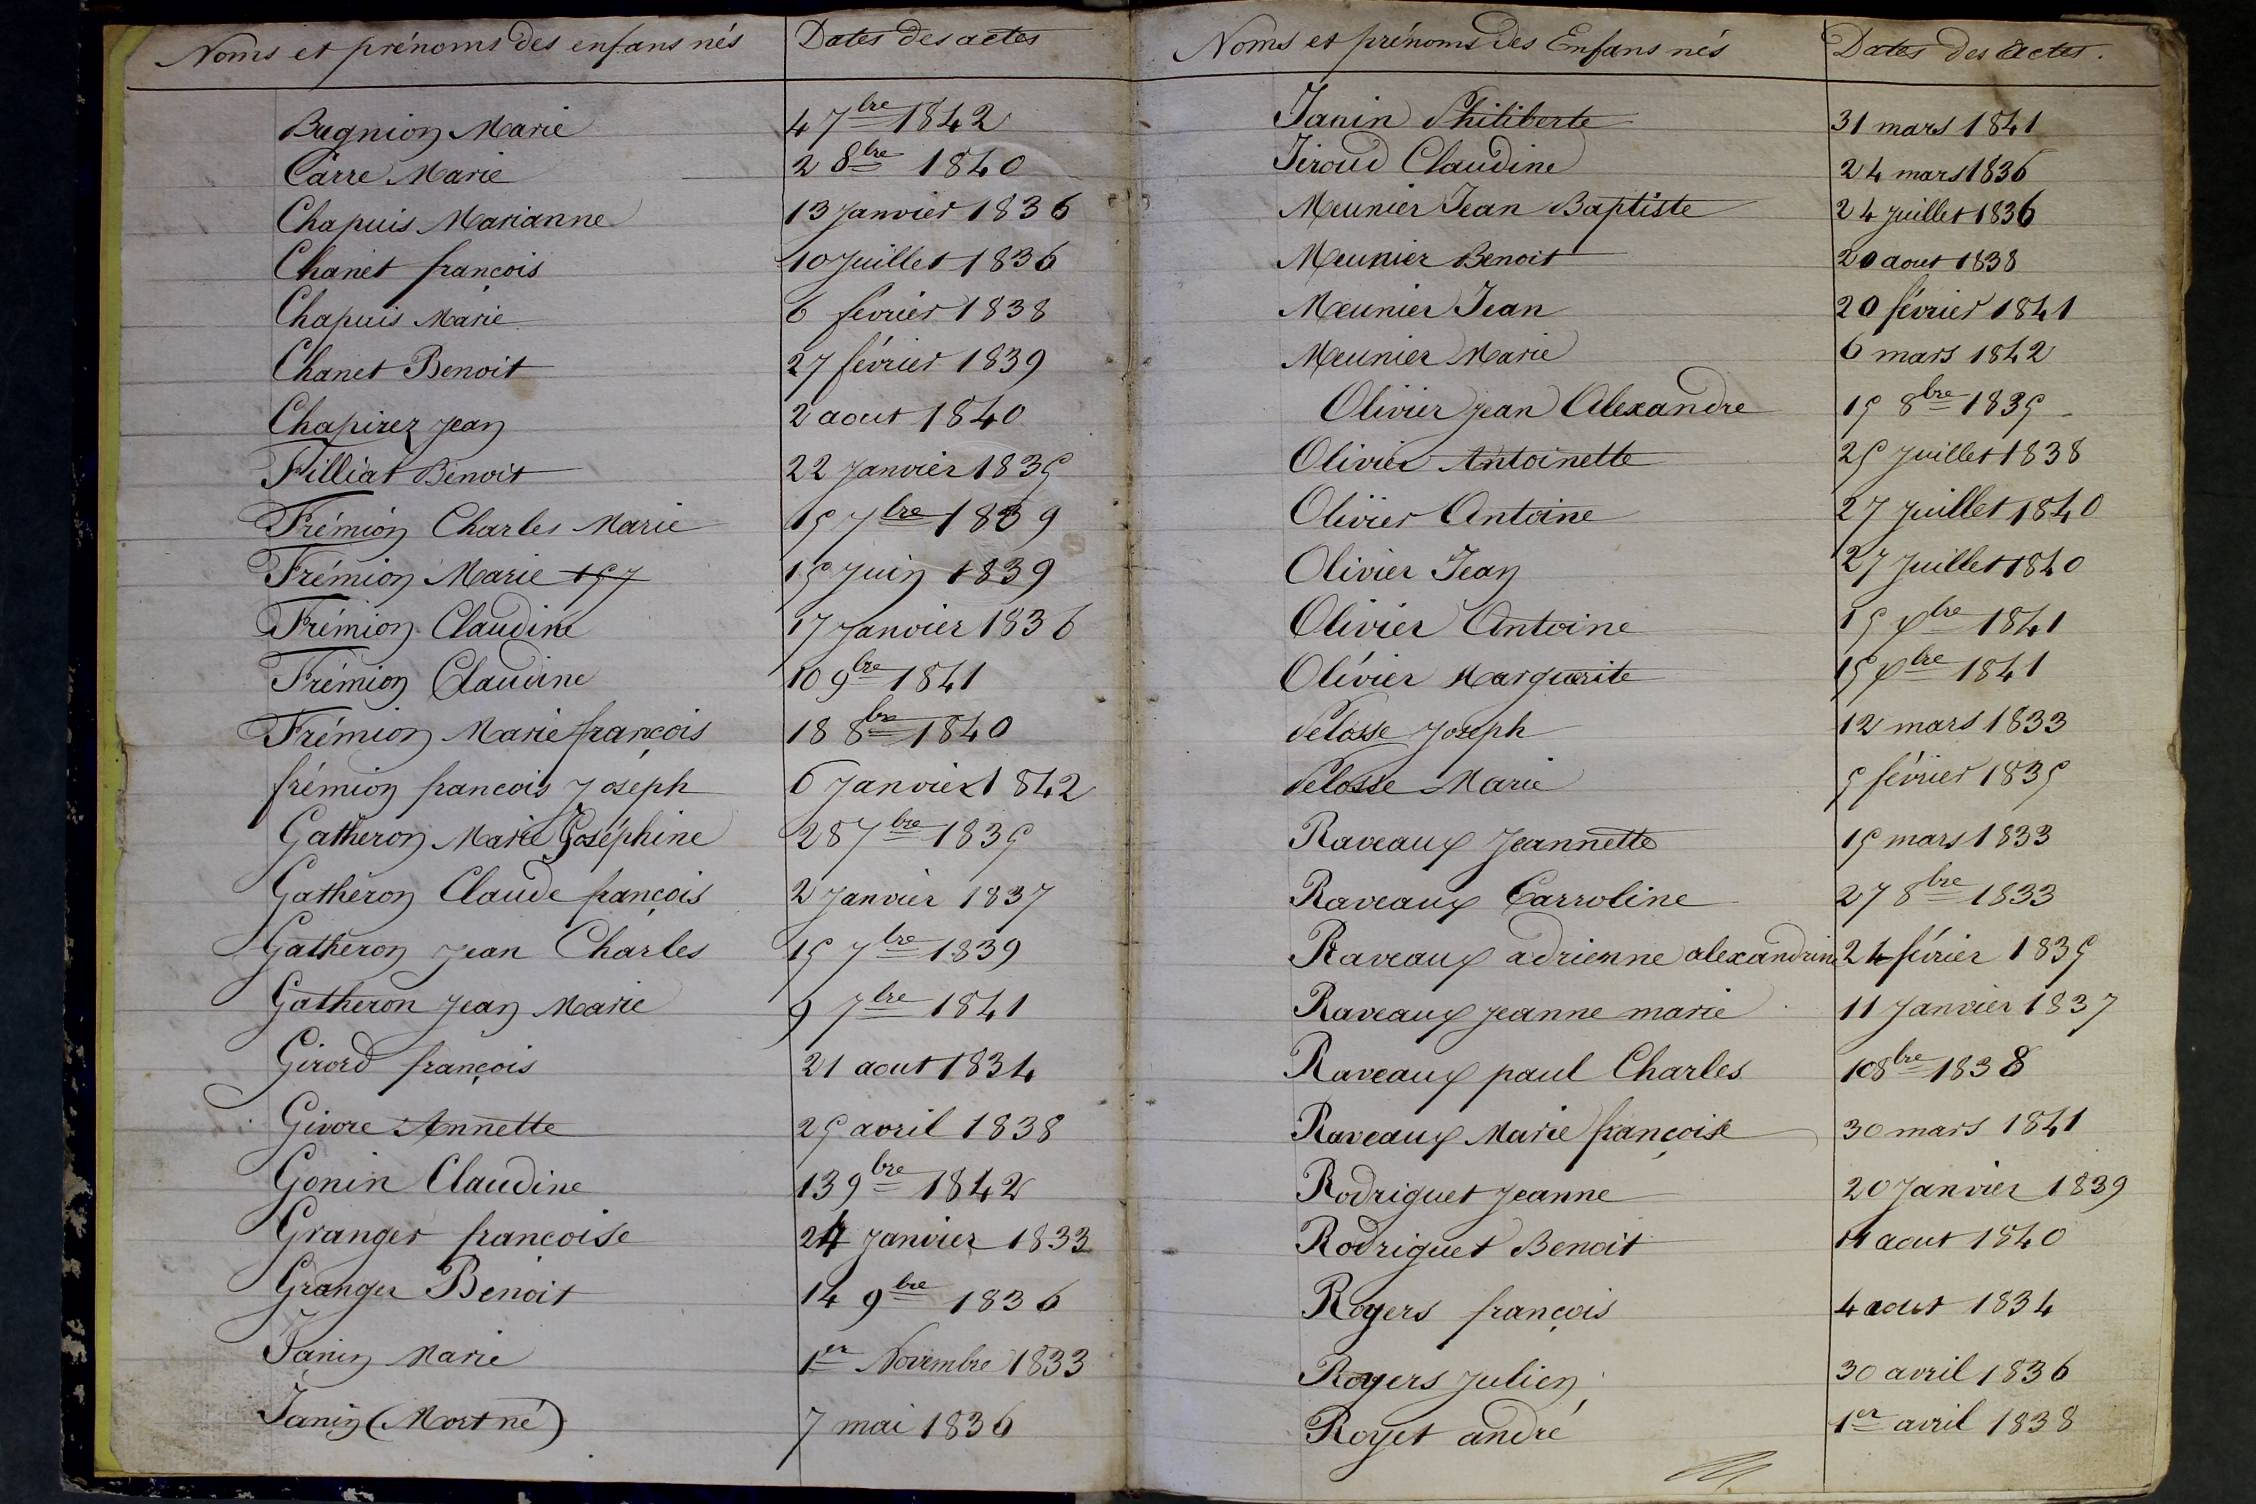 Noms et prénoms des enfans nés Dates des actes
Bugnion Marie 4 7bre 1842
Carre Marie 2 8bre 1840
Chapuis Marianne 13 Janvier 1836
Chanet françois 10 Juillet 1836
Chapuis Marie 6 février 1838
Chanet Benoit 27 février 1839
Chapirez Jean 2 aout 1840
Filliat Benoit 22 Janvier 1835
Frémion Charles Marie 15 7bre 1839
Frémion Marie 157 15 Juin 1839
Frémion Claudine 17 Janvier 1836
Frémion Claudine 10 9bre 1841
Frémion Marie françois 18 8bre 1840
frémion francois Joséph 6 Janvier 1842
Gatheron Marie Joséphine 28 7bre 1835
Gathéron Claude françois 2 Janvier 1837
Gathéron Jean Charles 15 7bre 1839
Gatheron Jean Marie 9 7bre 1841
Girord françois 21 aout 1834
Givore Annette 25 avril 1838
Gonin Claudine 13 9bre 1842
Granger francoise 24 Janvier 1833
Granger Benoit 14 9bre 1836
Janin Marie 1er Novembre 1833
Janin (Mort né) 7 mai 1836
Noms et prénoms des Enfans nés Dates des Actes.
Janin Philiberte 31 mars 1841
Jiroud Claudine 24 mars 1836
Meunier Jean Baptiste 24 Juillet 1836
Meunier Benoit 20 aout 1838
Meunier Jean 20 février 1841
Meunier Marie 6 mars 1842
Olivier Jean Alexandre 15 8bre 1835
Olivier Antoinette 25 Juillet 1838
Olivier Antoine 27 Juillet 1840
Olivier Jean 27 Juillet 1840
Olivier Antoine 15 xbre 1841
Olivier Marguerite 15 xbre 1841
Pelosse Joseph 12 mars 1833
Pelosse Marie 5 février 1835
Raveaux Jeannette 15 mars 1833
Raveaux Carroline 27 8bre 1833
Raveaux adrienne alexandrine 24 février 1835
Raveaux Jeanne marie 11 Janvier 1837
Raveaux paul Charles 10 8bre 1838
Raveaux Marie françoise 30 mars 1841
Rodriguet Jeanne 20 Janvier 1839
Rodriguet Benoit aout 1840
Royers françois 4 aout 1834
Royers Julien 30 avril 1836
Royet andré 1er avril 1838